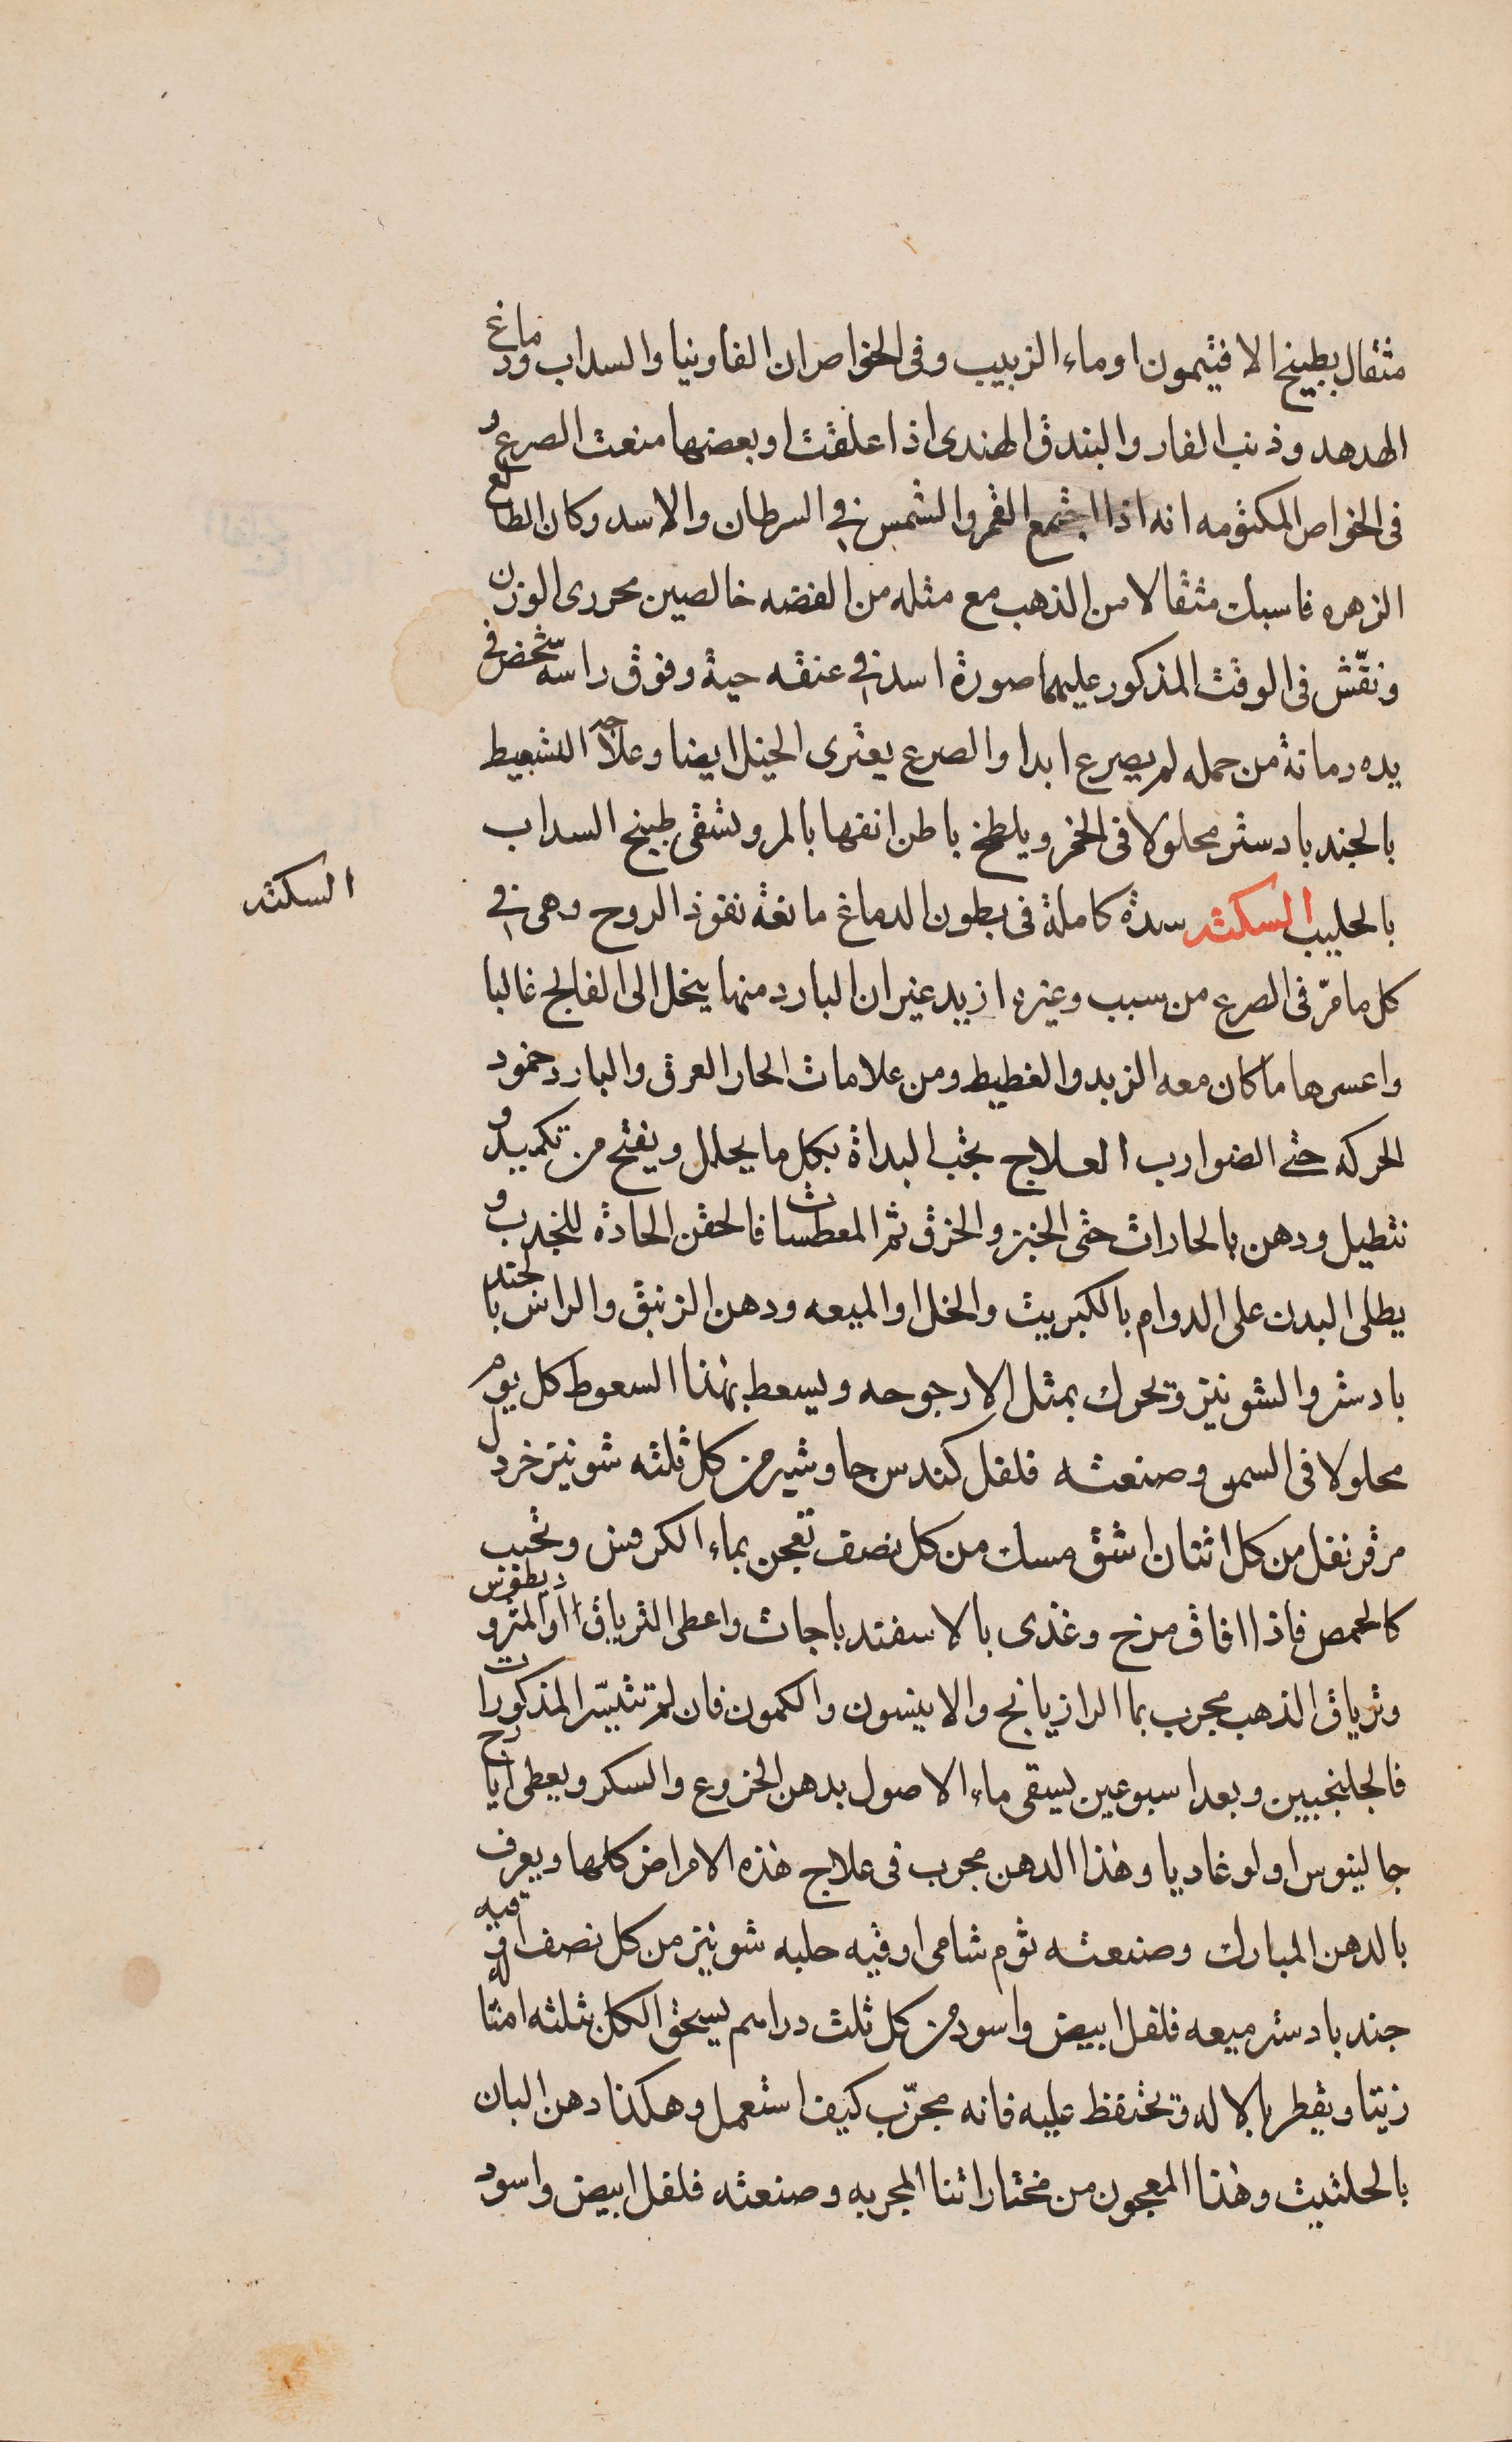 مثقال بطبيخ الافتيمون اوماء الزبيب وفى الخواص ان الفاونيا والسداب ودماغ
الهدهد وذنب الفار والبندق الهندى اذا علقت او بعضها منعت الصرع و
فى الخواص المكتومه انه اذا اجتمع القمر والشمس في السرطان والاسد وكان الطالع
الزهره فاسبك مثقالا من الذهب مع مثله من الفضه خالصين محررى الوزن
ونقّش فى الوقت المذكور عليهما صورة اسد في عنقه حية وفوق راسه شخص فى
يده رمانة من حمله لم يصرع ابدا والصرع يعترى الخيل ايضا وعلاجه التسعيط
بالجندبادستر محلولا فى الخمر ويلطخ باطن انفها بالمر وتسقى طبيخ السداب
بالحليب السكته سدة كاملة فى بطون الدماغ مانعة نفوذ الروح وهى في
السكته
كل ما مرّ فى الصرع من سبب وغيره ازيد غير ان البارد منها ينحل الى الفالج غالبا
واعسرها ما كان معه الزبد والغطيط ومن علامات الحار العرق والبارد خمود
الحركه حتى الضوارب العلاج يجب البداة بكل ما يحلل ويفتح من تكميد و
نتطيل ودهن بالحارات حتى الخبز والخرق ثم المعطسات فالحقن الحادة للجذب و
يطلى البدن على الدوام بالكبريت والخل او الميعه ودهن الزنبق والراس بالجند
بادستر والشونيز ويحرك بمثل الارجوحه ويسعط بهذا السعوط كل يوم
محلولا فى السمن وصنعته فلفل كندس جاوشير من كل ثلثه شونيز خردل
مر قرنفل من كل اثنان اشق مسك من كل نصف تعجن بماء الكرفس وتحبب
كالحمص فاذا افاق مرخ وغذى بالاسفندباجات واعطى الترياق او المثروديطوس
وترياق الذهب مجرب بما الرازيانج والانيسون والكمون فان لم تتيسّر المذكورات
فالجلنجبين وبعد اسبوعين يسقى ماء الاصول بدهن الخروع والسكر ويعطى ايارج
جالينوس او لوغاديا وهذا الدهن مجرب فى علاج هذه الامراض كلها ويعرف
بالدهن المبارك وصنعته ثوم شامى اوقيه حلبه شونيز من كل نصف اوقيه
جندبادستر ميعه فلفل ابيض واسود من كل ثلث دراهم يسحق الكل بثلثه امثاله
زيتا ويقطر بالاله ويحتفظ عليه فانه مجرّب كيف استعمل وهكذا دهن البان
بالحلتيت وهذا المعجون من مختاراتنا المجربه وصنعته فلفل ابيض واسود